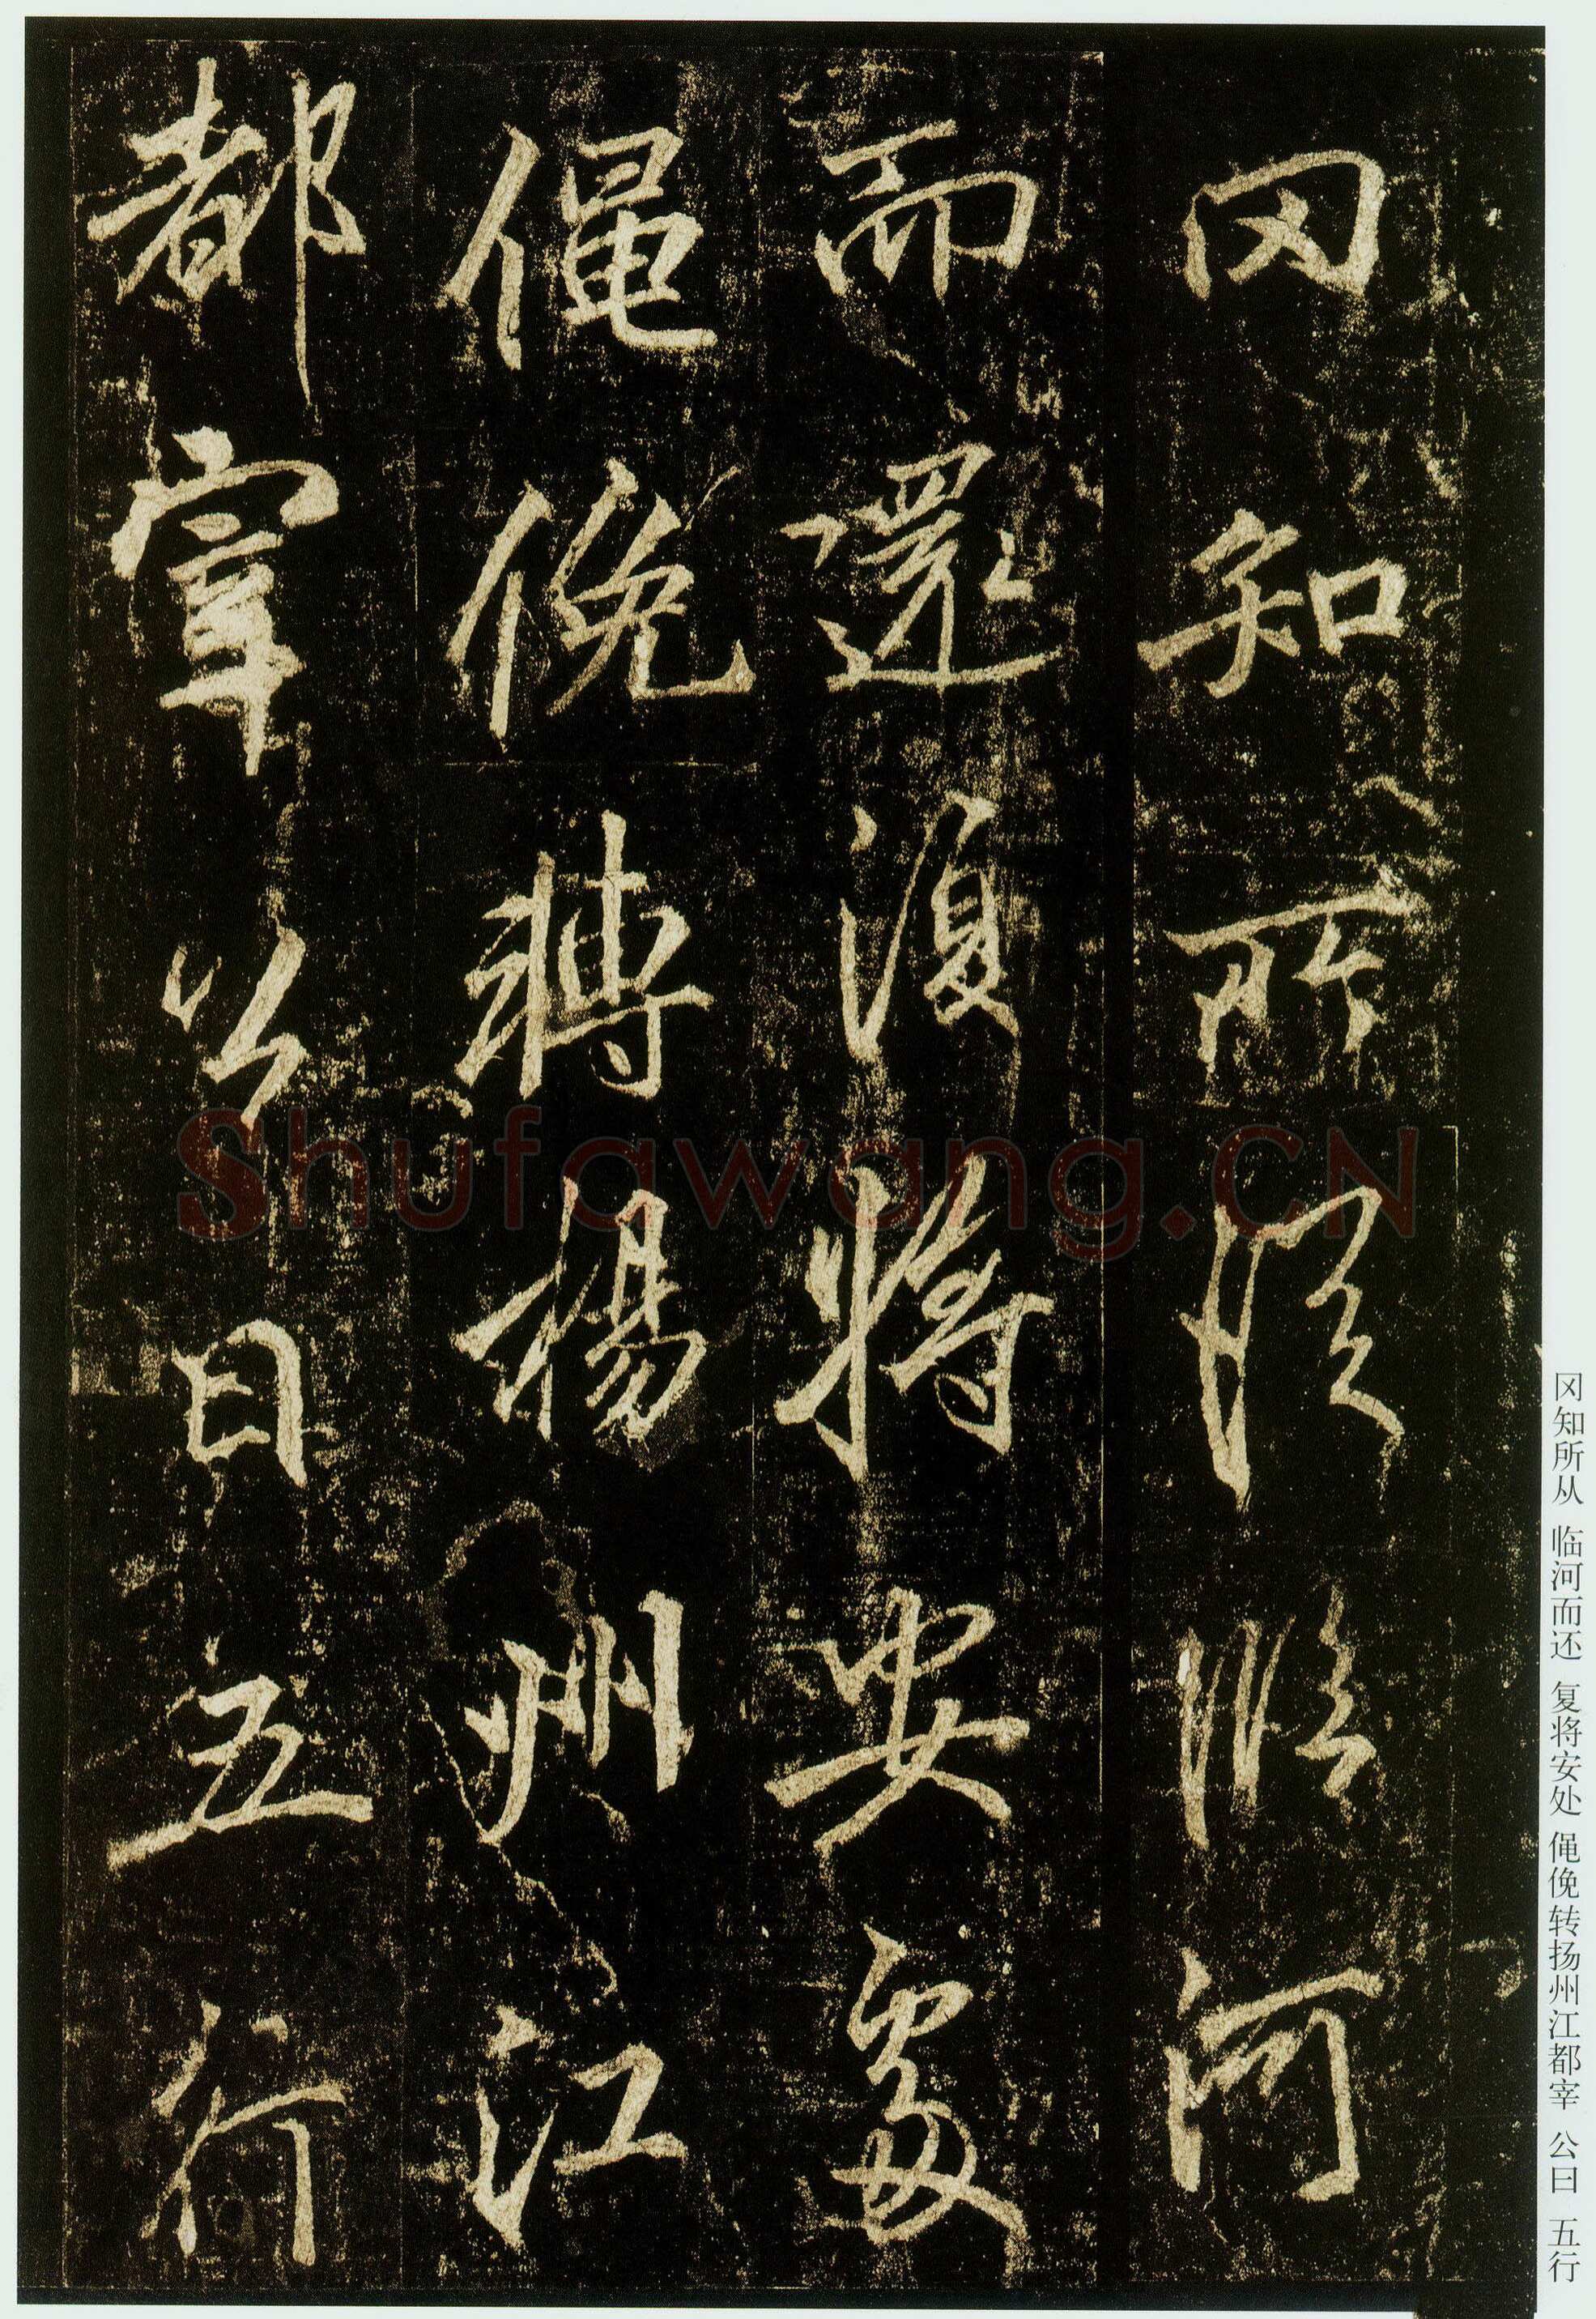 冈知所従臨河
而還復将安處
僶俛轉楊州江
都宰公曰五行
冈知所从 临河而还 复将安处 僶俛转扬州江都宰 公曰 五行
Shufawang.CN